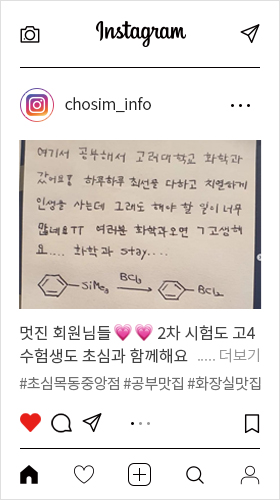 Instagram
chosim_info
여기서 공부해서 고려대학교 화학과
갔어요! 하루하루 최선을 다하고 치열하게
인생을 사는데 그래도 해야 할 일이 너무
많네요TT 여러분 화학과오면 ㄱ고생해
요.... 화학과 stay....
SiMe₃ BCl₃ BCl₂
멋진 회원님들💗💗 2차 시험도 고4
수험생도 초심과 함께해요 ..... 더보기
#초심목동중앙점 #공부맛집 #화장실맛집